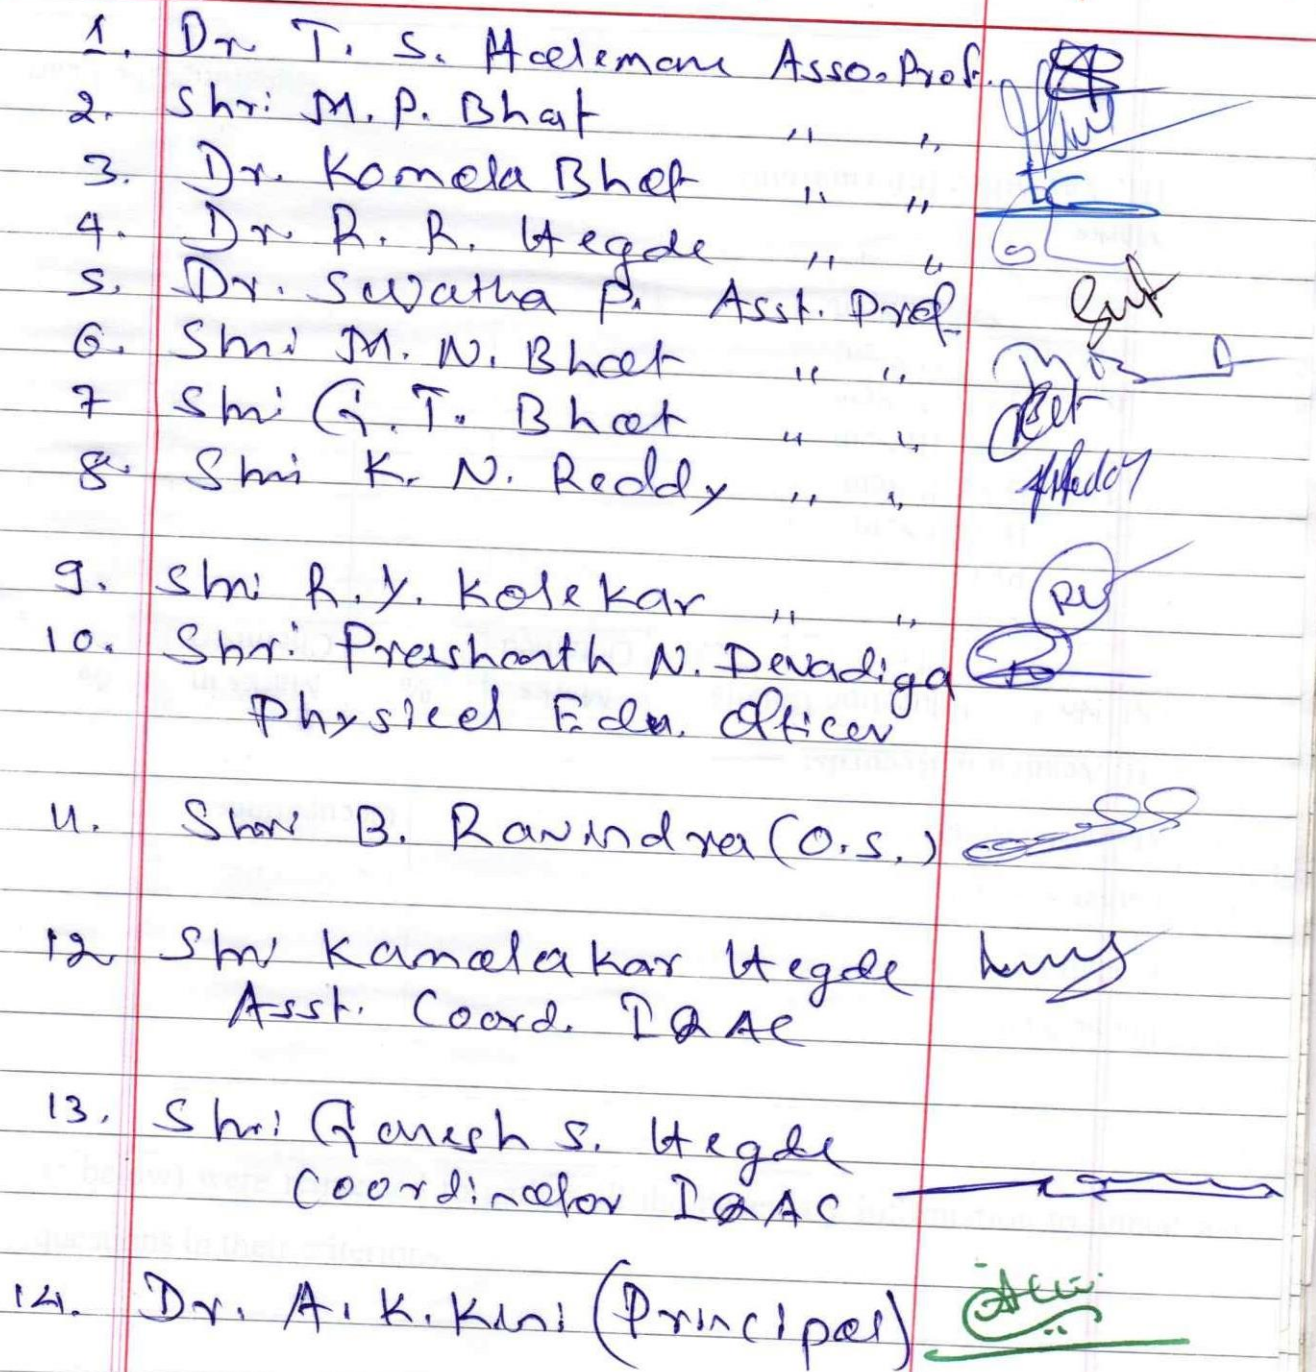 1. Dr T. S. Halemane Asso. Prof.
2. Shri M. P. Bhat ,, ,,
3. Dr. Komala Bhat ,, ,,
4. Dr R. R. Hegde ,, ,,
5. Dr. Swatha P. Asst. Prof.
6. Shri M. N. Bhat ,, ,,
7 Shri G. T. Bhat ,, ,,
8. Shri K. N. Reddy ,, ,,
9. Shri R. Y. Kolekar ,, ,,
10. Shri Prashanth N. Devadiga
Physical Edu. Officer
11. Shri B. Ravindra (O.S.)
12 Shri Kamalakar Hegde
Asst. Coord. IQAC
13. Shri Ganesh S. Hegde
Coordinator IQAC
14. Dr. A. K. Kini (Principal)